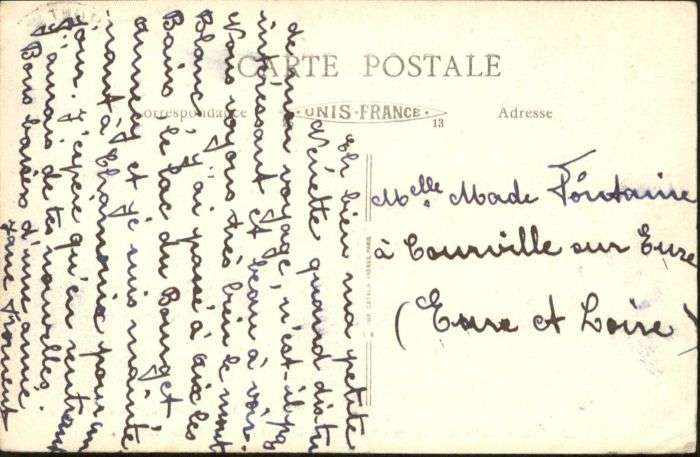 CARTE POSTALE
Correspondance
UNIS-FRANCE
13
Adresse
Eh bien ma petite
quand dis tu
de mon voyage, n'est-il pas
intéressant et beau à voir.
Nous voyons très bien le mont
Blanc, j'ai passé à aix les
Bains le lac du Bourget
annecy et je suis montée
à Chamonix pour un
jour. J'espère qu'en rentrant
j'aurais de tes nouvelles.
Bons baisers d'une amie
Melle Made Fontaine
à Courville sur Eure
(Eure et Loire)